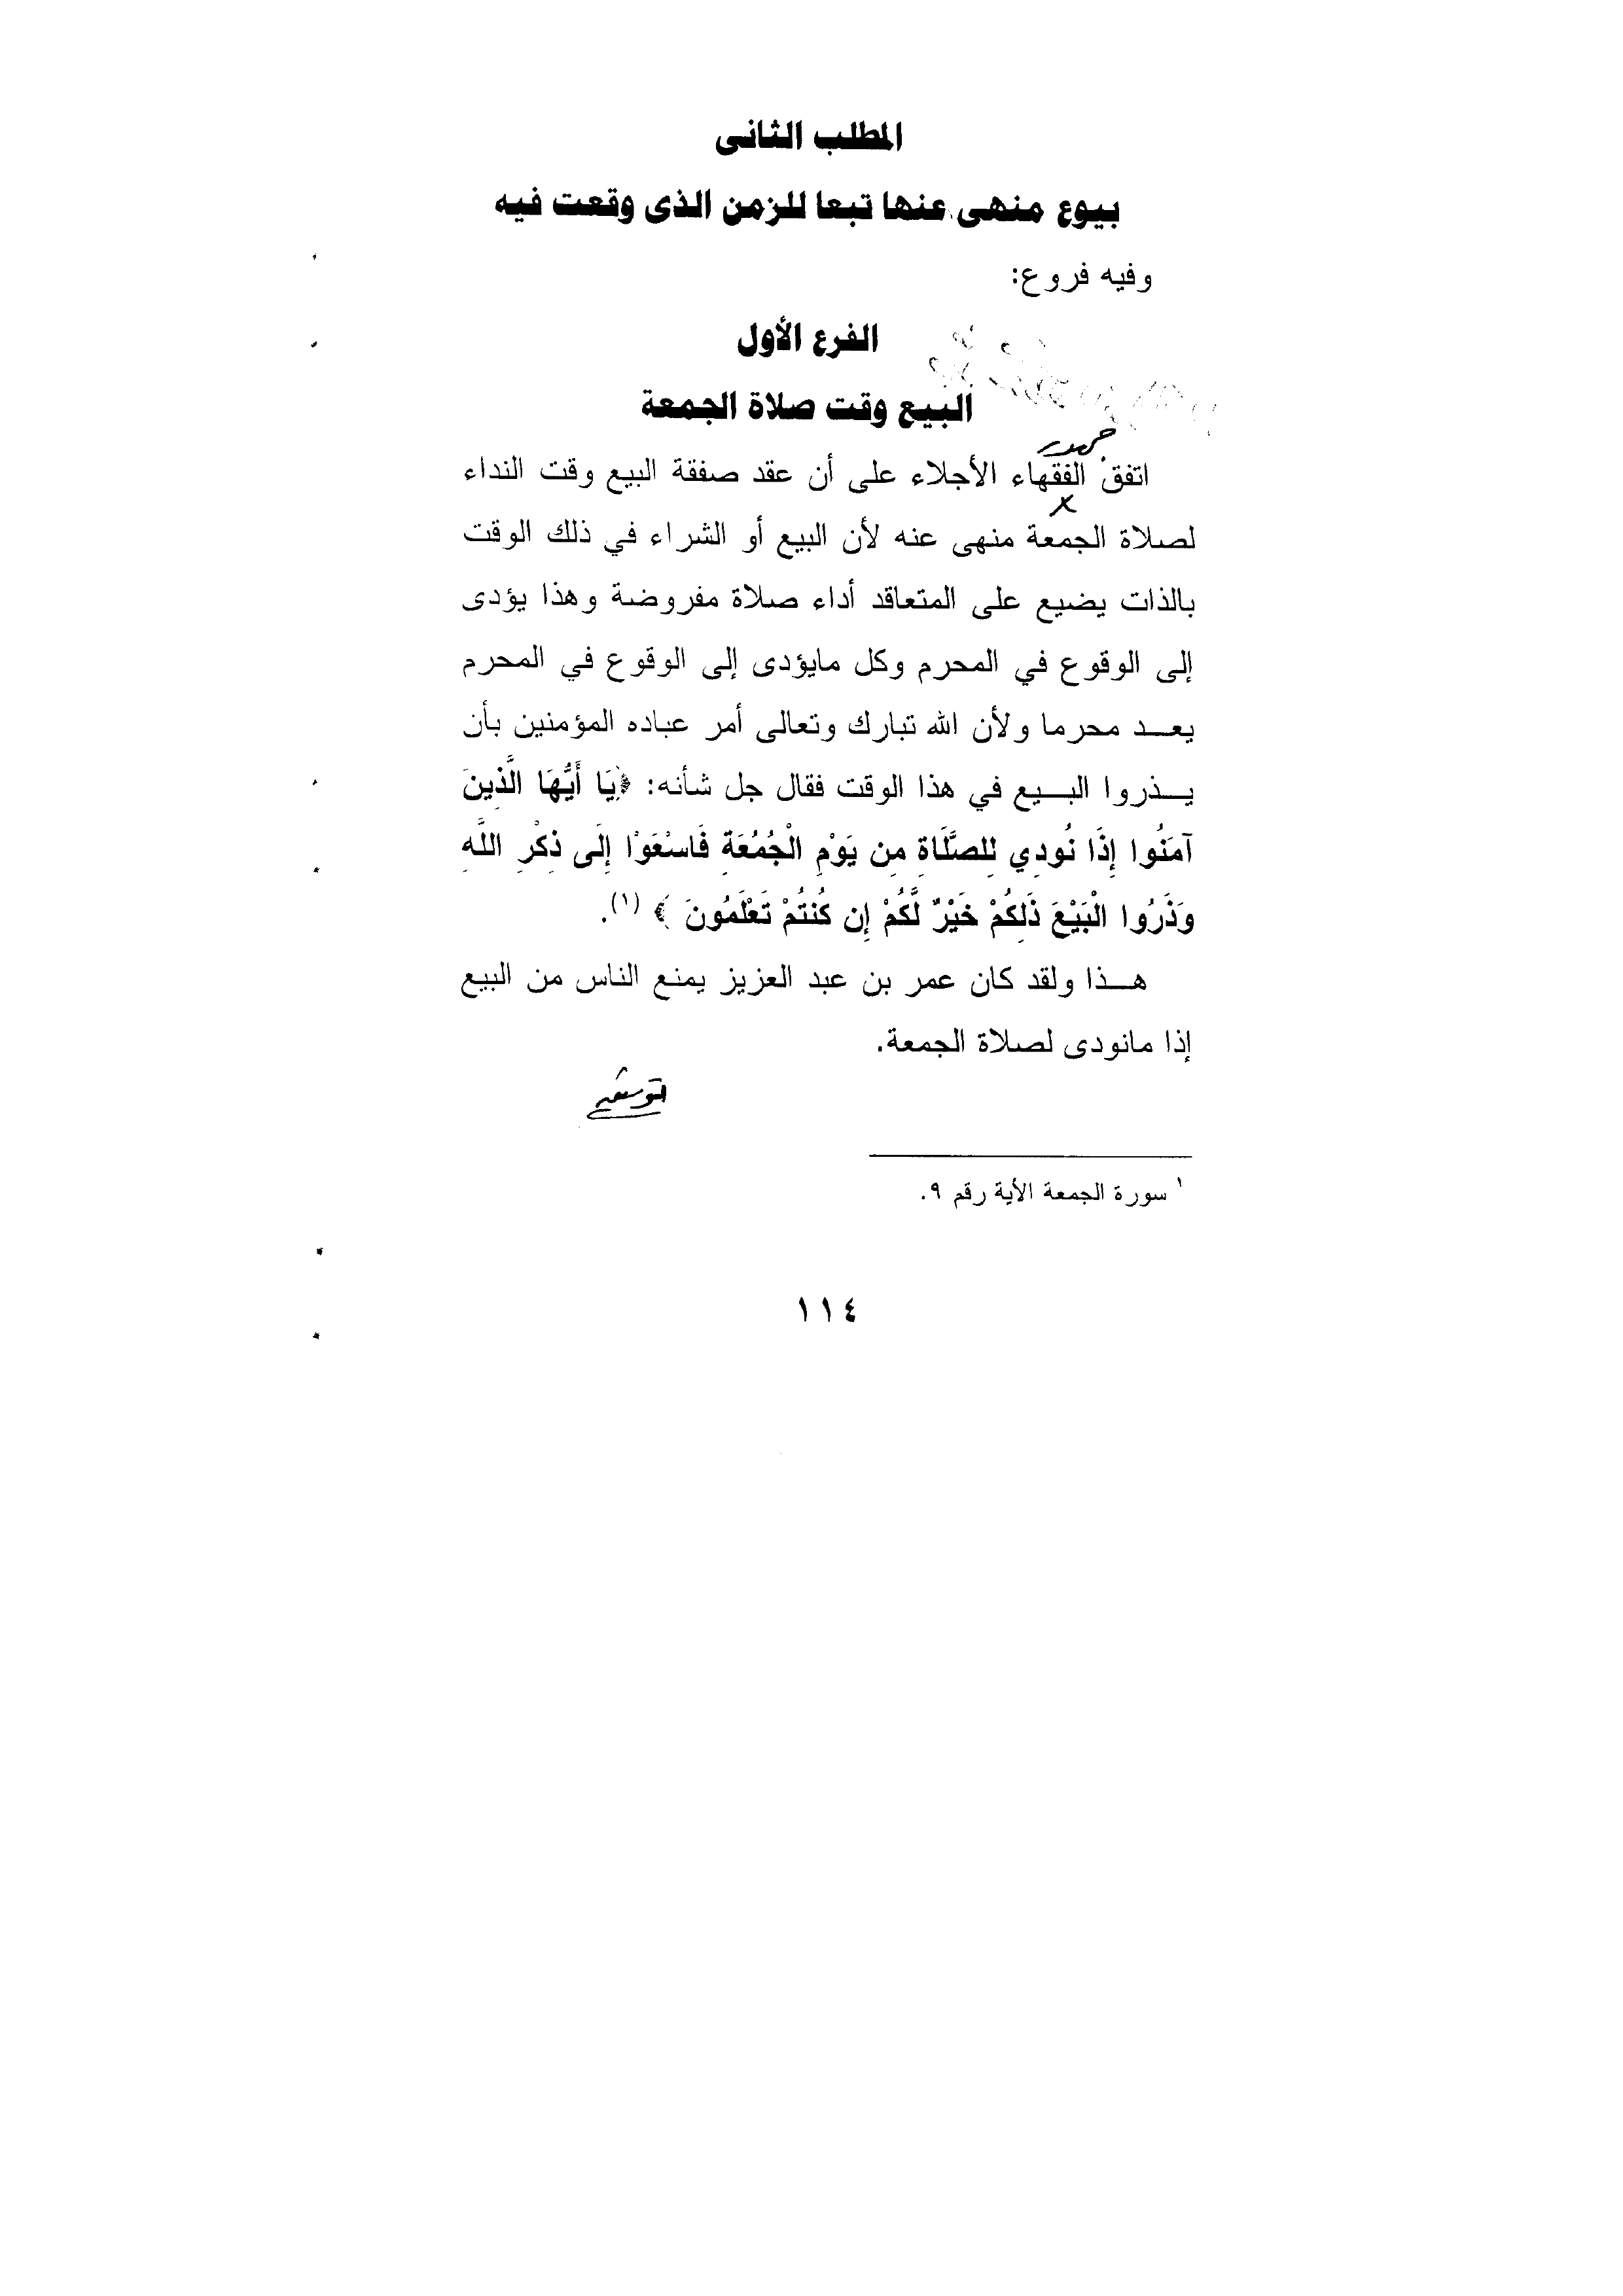 المطلب الثانى
بيوع منهى عنها تبعا للزمن الذى وقعت فيه
وفيه فروع:
الفرع الأول
البيع وقت صلاة الجمعة
اتفق الفقهاء الأجلاء على أن عقد صفقة البيع وقت النداء
لصلاة الجمعة منهى عنه لأن البيع أو الشراء في ذلك الوقت
بالذات يضيع على المتعاقد أداء صلاة مفروضة وهذا يؤدى
إلى الوقوع في المحرم وكل مايؤدى إلى الوقوع في المحرم
يعد محرما ولأن الله تبارك وتعالى أمر عباده المؤمنين بأن
يذروا البيع في هذا الوقت فقال جل شأنه: ﴿يَا أَيُّهَا الَّذِينَ
آمَنُوا إِذَا نُودِي لِلصَّلَاةِ مِن يَوْمِ الْجُمُعَةِ فَاسْعَوْا إِلَى ذِكْرِ اللَّهِ
وَذَرُوا الْبَيْعَ ذَلِكُمْ خَيْرٌ لَّكُمْ إِن كُنتُمْ تَعْلَمُونَ ﴾ (١).
هذا ولقد كان عمر بن عبد العزيز يمنع الناس من البيع
إذا مانودى لصلاة الجمعة.
١ سورة الجمعة الأية رقم ٩.
١١٤